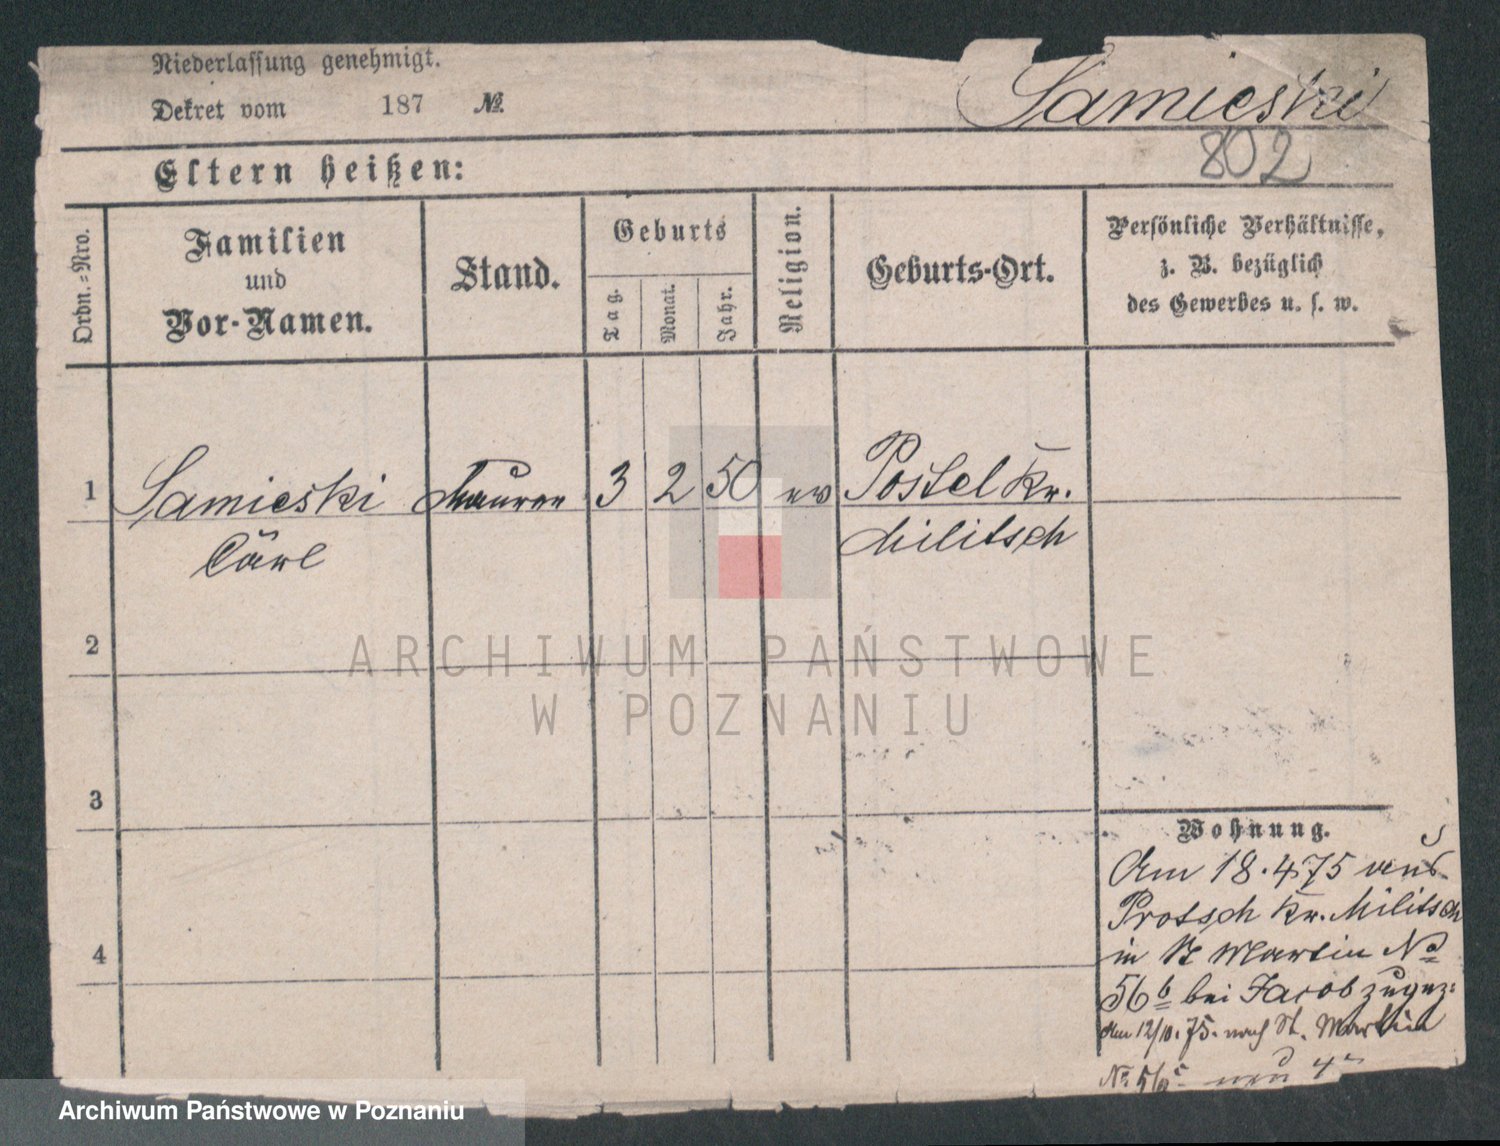 Niederlassung genehmigt.
Dekret vom 187 №.
Samieski
802
Eltern heißen:
Ordn.-Nro.
Familien
und
Vor-Namen.
Stand.
Geburts
Tag.
Monat.
Jahr.
Religion.
Geburts-Ort.
Persönliche Verhältnisse,
z. B. bezüglich
des Gewerbes u. s. w.
1 Samieski Maurer 3 2 50 ev Postel Kr.
Carl Militsch
2
3
4
Wohnung.
Am 18.4 75 aus
Protsch Kr. Militsch
in St Martin No
56 b bei Jacob zugez:
Am 12/10.75. nach St. Martin
No
ARCHIWUM PAŃSTWOWE
W POZNANIU
Archiwum Państwowe w Poznaniu